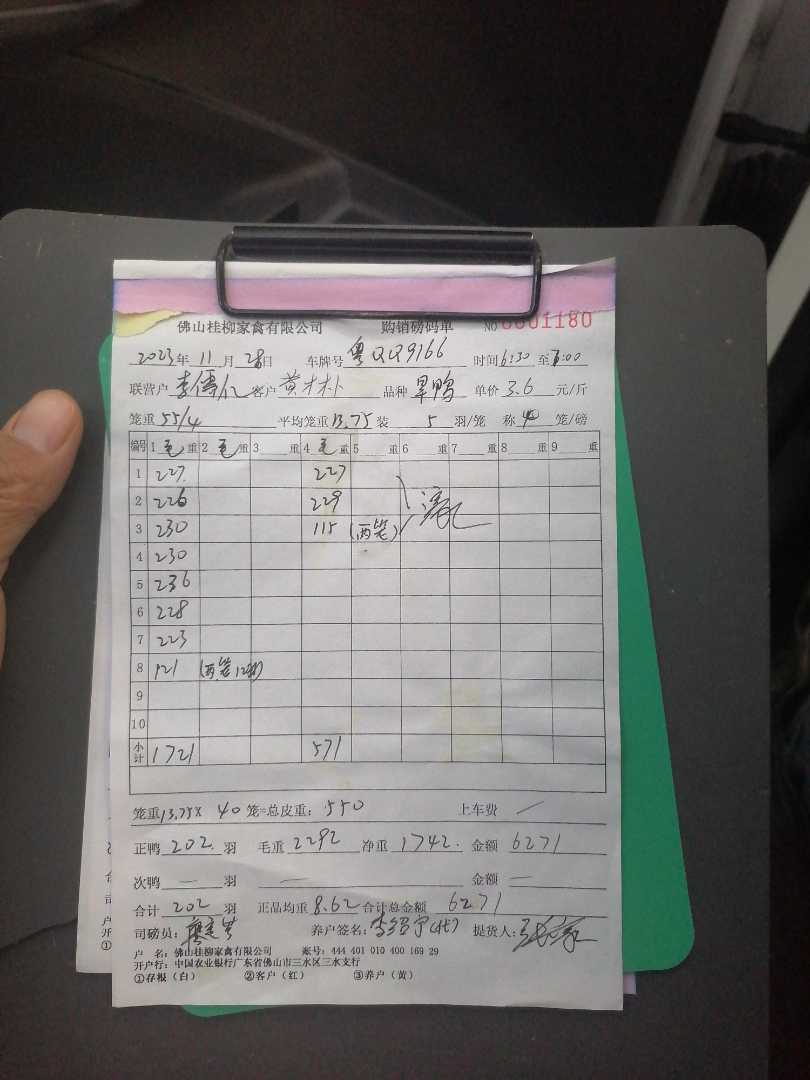 佛山桂柳家禽有限公司 购销磅码单 NO 0001180
2023年 11月 28日 车牌号 粤QQ9166 时间 6:30 至 7:00
联营户 李傳仁 客户 黄木林 品种 旱鸭 单价 3.6 元/斤
笼重 55/4 平均笼重 13.75 装 5 羽/笼 称 4 笼/磅
编号 1 毛 重 2 毛 重 3 重 4 毛 重 5 重 6 重 7 重 8 重 9 重
1 227 227
2 226 229
3 230 115 (两笼)
4 230
5 236
6 228
7 223
8 121 (两笼12只)
9
10
小计 1721 571
笼重 13.75 X 40 笼=总皮重: 550 上车费 /
正鸭 202 羽 毛重 2292 净重 1742 金额 6271
次鸭 — 羽 — 金额 —
合计 202 羽 正品均重 8.62 合计总金额 6271
司磅员: 养户签名: (代) 提货人:
户 名: 佛山桂柳家禽有限公司 账号: 444 401 010 400 169 29
开户行: 中国农业银行广东省佛山市三水区三水支行
①存根(白) ②客户(红) ③养户(黄)